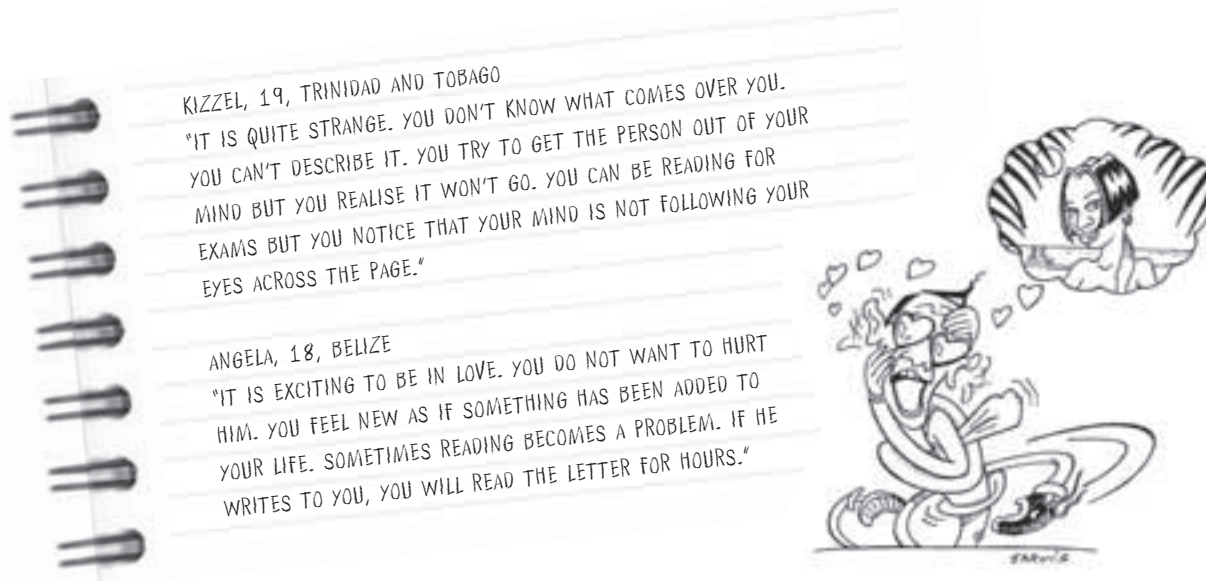 KIZZEL, 19, TRINIDAD AND TOBAGO
"IT IS QUITE STRANGE. YOU DON'T KNOW WHAT COMES OVER YOU.
YOU CAN'T DESCRIBE IT. YOU TRY TO GET THE PERSON OUT OF YOUR
MIND BUT YOU REALISE IT WON'T GO. YOU CAN BE READING FOR
EXAMS BUT YOU NOTICE THAT YOUR MIND IS NOT FOLLOWING YOUR
EYES ACROSS THE PAGE."
ANGELA, 18, BELIZE
"IT IS EXCITING TO BE IN LOVE. YOU DO NOT WANT TO HURT
HIM. YOU FEEL NEW AS IF SOMETHING HAS BEEN ADDED TO
YOUR LIFE. SOMETIMES READING BECOMES A PROBLEM. IF HE
WRITES TO YOU, YOU WILL READ THE LETTER FOR HOURS."